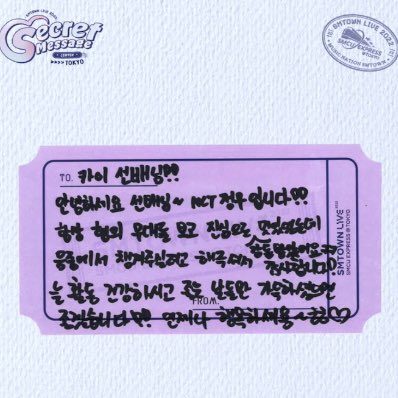 SMTOWN LIVE 2022
Secret Message
CENTER
TOKYO
SMTOWN LIVE 2022
SMCU EXPRESS
@TOKYO
MUSIC NATION SMTOWN
TO. 카이 선배님!!
안녕하세요 선배님~ NCT 정우입니다!!
항상 형의 무대를 보고 진심으로
응원에서 챙겨주실려고 해주셔서
감사합니다
늘 활동 건강하시고 좋은 날들만 가득하셨으면
FROM.
좋겠습니다!! 언제나 행복하세용~
SMTOWN LIVE 2022
SMCU EXPRESS @TOKYO